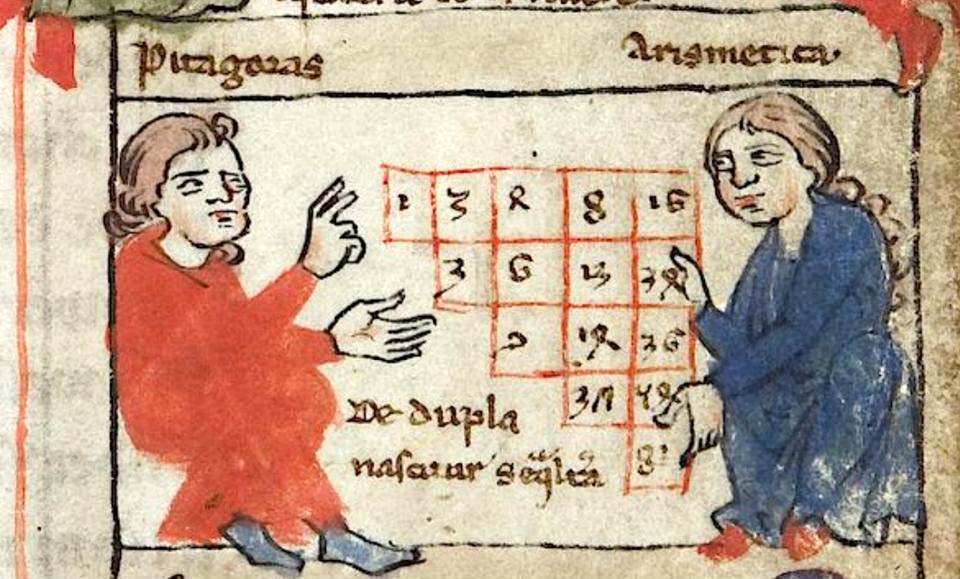 Pitagoras Arismetica
1 2 4 8 16
3 6 12 24
9 18 36
27 54
81
De dupla
nascitur